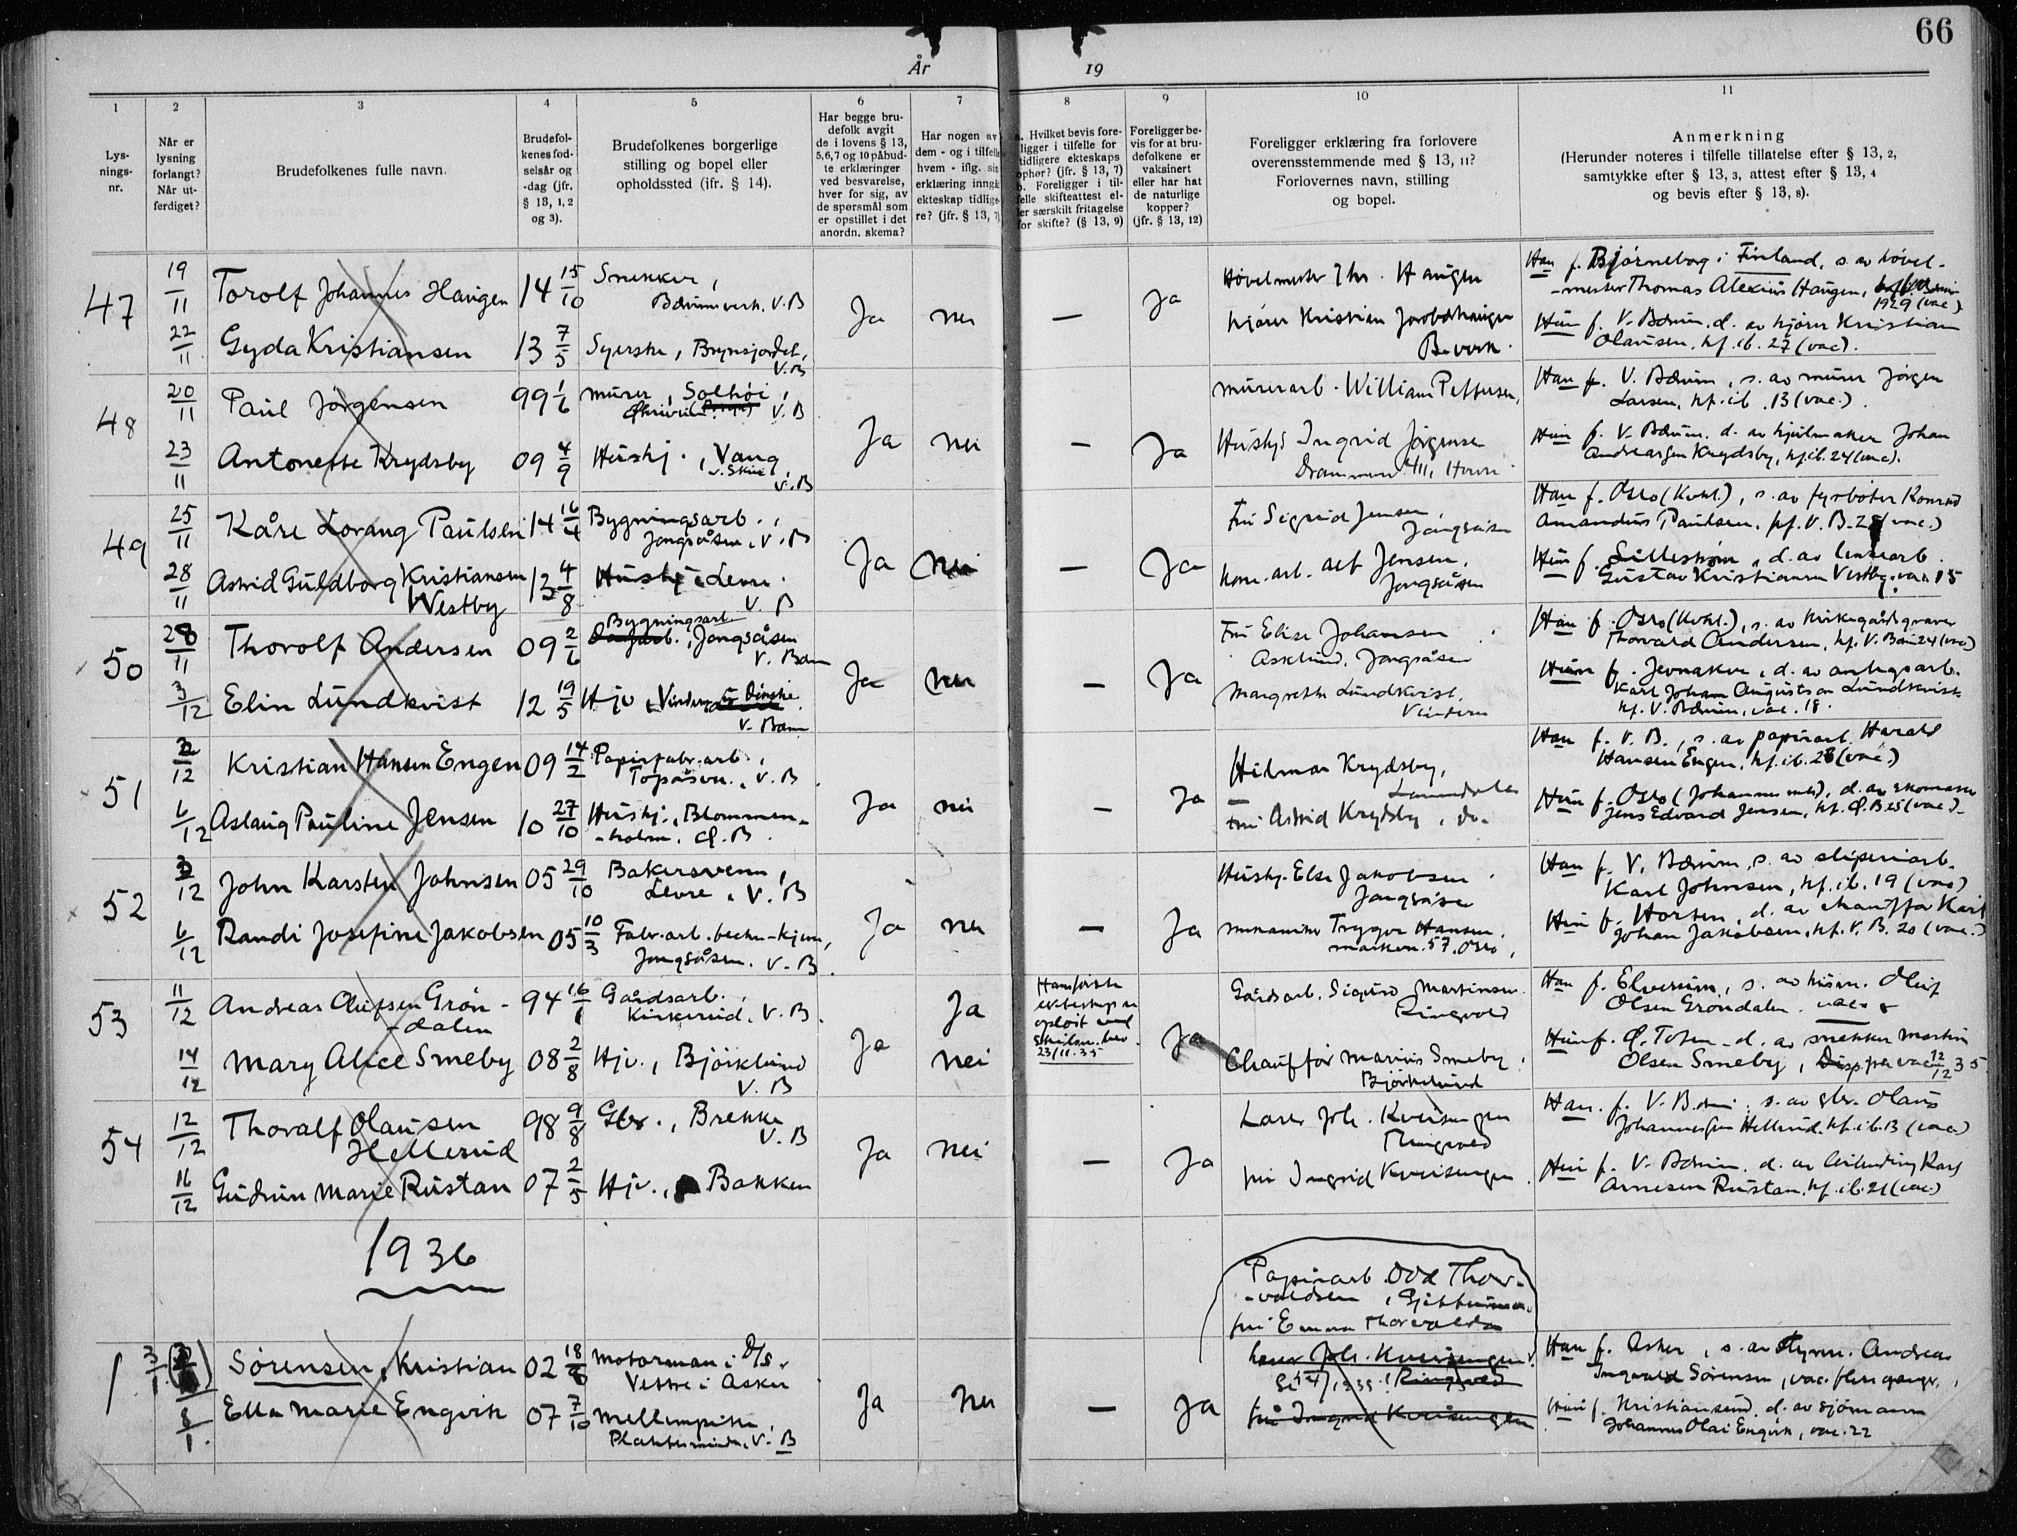 66
År
19
1
2
3
4
5
6
7
8
9
10
11
Lys-
nings-
nr.
Når er
lysning
forlangt?
Når ut-
ferdiget?
Brudefolkenes fulle navn.
Brudefol-
kenes fød-
selsår og
-dag (jfr.
§ 13, 1, 2
og 3).
Brudefolkenes borgerlige
stilling og bopel eller
opholdssted (ifr. § 14).
Har begge bru-
defolk avgit
de i lovens § 13,
5,6,7 og 10 påbud-
te erklæringer
ved besvarelse,
hver for sig, av
de spørsmål som
er opstillet i det
anordn. skema?
Har nogen av
dem - og i tilfelle
hvem - iflg. sin
erklæring inngå
ekteskap tidlige-
re? (jfr. § 13, 7)
a. Hvilket bevis fore-
ligger i tilfelle for
tidligere ekteskaps
ophør? (jfr. § 13, 7)
b. Foreligger i til-
felle skifteattest el-
ler særskilt fritagelse
for skifte? (§ 13, 9)
Foreligger be-
vis for at bru-
defolkene er
vaksinert
eller har hat
de naturlige
kopper?
(jfr. § 13, 12)
Foreligger erklæring fra forlovere
overensstemmende med § 13, 11?
Forlovernes navn, stilling
og bopel.
Anmerkning
(Herunder noteres i tilfelle tillatelse efter § 13, 2,
samtykke efter § 13, 3, attest efter § 13, 4
og bevis efter § 13, 8).
47
19/11
Torolf Johannes Haugen
14 15/10
Snekker,
Bærumsverk. V. B
22/11
Gyda Kristiansen
13 7/5
Syerske, Brynsjordet,
V. B
Ja
nei
—
Ja
Høvelmester Ths. Haugen
kjører Kristian
B. verk.
Han f. Bjørneborg i Finland, s. av høvel-
-mester Thomas Alexius Haugen,
1929 (vac)
Hun f. V. Bærum, d. av kjører Kristian
Olausen, kf. ib. 27 (vac).
48
20/11
Paul Jørgensen
99 1/6
murer, Solhøi,
V. B
23/11
Antonette Krydsby
09 4/9
Hushj., Vang
v. Skui,
V. B
Ja
nei
—
Ja
murerarb. William Pettersen,
Hushj. Ingrid Jørgensen
Han f. V. Bærum, s. av murer Jørgen
Larsen, kf. ib. 13 (vac.).
Hun f. V. Bærum, d. av hjulmaker Johan
Andreassen Krydsby, kf. ib. 24 (vac).
49
25/11
Kåre Lorang Paulsen
14 16/4
Bygningsarb.,
Jongsåsen, V. B
28/11
Astrid Guldborg Kristiansen
Westby
12 4/8
Hushj. Levre.
V. B
Ja
Nei
—
Ja
Fru Sigrid Jensen,
Jongsåsen
kom. arb. Alf Jensen,
Jongsåsen
Han f. Oslo (Kvhl.), s. av fyrbøter Konrad
Amandus Paulsen, kf. V. B. 28 (vac.)
Hun f. Lillestrøm, d. av linsearb.
Gustav Kristiansen Vestby. vac. 15
50
28/11
Thorolf Andersen
09 2/6
Bygningsarb.
Jongsåsen
V. Bærum
3/12
Elin Lundkvist
12 19/5
Hjv., Vindern
V. Bærum
Ja
nei
—
Ja
Fru Elise Johansen
Asklund, Jongsåsen
Margrethe Lundkvist,
Vindern
Han f. Oslo (Kvhl.), s. av kirkegårdsgraver
Thorvald Andersen, kf. V. Bærum 24 (vac)
Hun f. Jevnaker, d. av anlegsarb.
Karl Johan Augustson Lundkvist
kf. V. Bærum, vac. 18.
51
2/12
Kristian Hansen Engen
09 14/2
Papirfabr. arb.,
Topåsen, V. B
6/12
Aslaug Pauline Jensen
10 27/10
Hushj., Blommen-
-holm, Ø. B.
Ja
nei
—
Ja
Hilmar Krydsby,
Fru Astrid Krydsby, do.
Han f. V. B., s. av papirarb. Harald
Hansen Engen, kf. ib. 28 (vac.)
Hun f. Oslo (Johannes men), d. av skomaker
Jens Edvard Jensen, kf. Ø. B 25 (vac.)
52
3/12
John Karsten Johnsen
05 29/10
Bakersvenn,
Levre, V. B
6/12
Randi Josefine Jakobsen
05 10/3
Fabr. arb.
Jongsåsen. V. B.
Ja
nei
—
Ja
Hushj. Else Jakobsen.
Jongsåsen
mekaniker Trygve Hansen,
57. Oslo,
Han f. V. Bærum, s. av sliperiarb.
Karl Johnsen, kf. ib. 19 (vac)
Hun f. Horten, d. av chauffør Karl
Johan Jakobsen, kf. V. B. 20 (vac.)
53
11/12
Andreas Olufsen Grøn-
-dalen
94 16/1
Gårdsarb.,
Kirkerud, V. B.
14/12
Mary Alice Smeby
08 2/8
Hjv., Bjørklund
V. B
Ja
Ja
nei
Hans første
ekteskap er
opløst ved
Skilsm. bev.
23/11. 35
Ja
Gårdsarb. Sigurd Martinsen
Ringvold
Chauffør Marius Smeby,
Bjørkelund
Han f. Elverum, s. av husm. Oluf
Olsen Grøndalen. vac.
Hun f. Ø. Toten, d. av snekker Martin
Olsen Smeby, Disp. fra vac 12/12 35.
54
12/12
Thoralf Olausen
Hellerud
98 9/8
Gbr., Brekke
V. B
16/12
Gudrun Marie Rustan
07 2/5
Hjv., Bakken
Ja
nei
—
Ja
Lars Joh. Kveisengen
Ringvold
fru Ingrid Kveisengen.
Han f. V. Bærum, s. av gbr. Olaus
Johannessen Hellerud, kf. ib. 13 (vac.)
Hun f. V. Bærum, d. av Karl
Arnesen Rustan, kf. ib. 21 (vac.)
1936
1
3/1
8/1.
Sørensen, Kristian
02 18/8
Motormann i D/S.
Vettre i Asker
Ella Marie Engvik
07 7/10
Mellempike,
V. B
Ja
nei
—
Ja
Papirarb. Odd Thor-
-valdsen,
fru Emma Thorvaldsen
Lars Joh. Kveisengen
Ringvold
fru Ingrid Kveisengen
Han f. Asker, s. av styrm. Andreas
Ingvald Sørensen, vac. flere ganger,
Hun f. Kristiansund, d. av sjømann
Johannes Olai Engvik, vac. 22